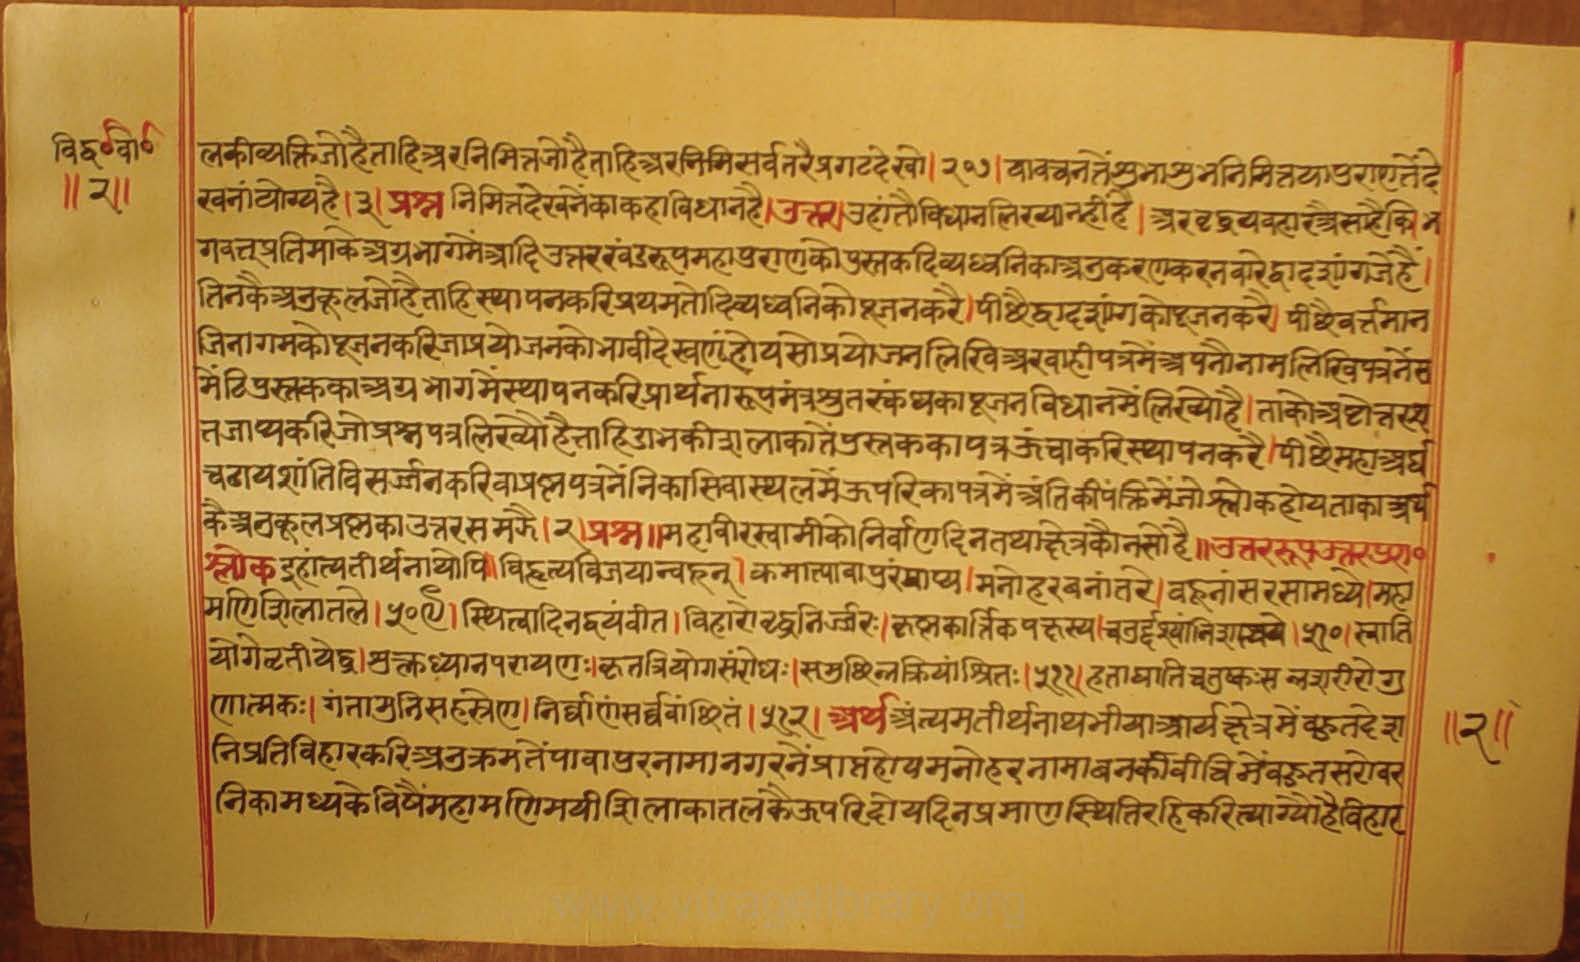 विद्व०बो०
॥२॥
लकीव्यक्तिजोहैताहिअरनिमित्तजोहैताहिअरनिमिसर्वतरैप्रगटदेखो।२९७।यावचनतेंशुभाशुभनिमित्तयापुराणतेंदे
खनांयोग्यहै।३।प्रश्ननिमित्तदेखनेंकाकहाविधानहै।उत्तर।उहांतौविधानलिख्यानहींहै।अरवृद्धव्यवहारऔसाहैकिभ
गवत्प्रतिमाकेअग्रभागमेंआदिउत्तरखंडरूपमहापुराणकोपुस्तकदिव्यध्वनिकाअनुकरणकरनवारेद्वादशांगजेहैं।
तिनकैअनुकूलजोहैताहिस्थापनकरिप्रथमतोदिव्यध्वनिकोपूजनकरै।पीछैद्वादशांगकोपूजनकरै।पीछैवर्त्तमान
जिनागमकोपूजनकरिजाप्रयोजनकोभावीदेखणंहोयसोप्रयोजनलिखिअरवाहीपत्रमेंअपनौनामलिखिपत्रनेंस
मेंटिपुस्तककाअग्रभागमेंस्थापनकरिप्रार्थनारूपमंत्रश्रुतस्कंधकापूजनविधानमेंलिख्योहै।ताकोअष्टोत्तरश
तजाप्यकरिजोप्रश्नपत्रलिख्यौहैताहिडाभकीशलाकातेंपुस्तककापत्रऊंचाकरिस्थापनकरै।पीछैमहाअर्घ
चढायशांतिविसर्ज्जनकरिवाप्रश्नपत्रनेंनिकासिवास्थलमेंऊपरिकापत्रमेंअंतिकीपंक्तिमेंजोश्लोकहोयताकाअर्थ
कैअनुकूलप्रश्नकाउत्तरसमझै।२।प्रश्न॥महावीरस्वामीकोनिर्वाणदिनतथाक्षेत्रकौनसोहै॥उत्तररूपउत्तरपुरा०
श्लोकइहांत्यतीर्थनाथोपि।विहृत्यविजयान्वहून्।कमात्पावापुरंप्राप्य।मनोहरवनांतरे।वहूनांसरसामध्ये।महा
मणिशिलातले।५०९।स्थित्वादिनद्वयंवीत।विहारोवृद्धनिर्ज्जरः।कृष्णकार्तिकपक्षस्य।चतुर्द्दश्यांनिशात्यये।५१०।स्वाति
योगेतृतीयेद्ध।शुक्लध्यानपरायणः।कृतत्रियोगसंरोधः।समुछिन्नक्रियांश्रितः।५११।हताघातिचतुष्कःसन्नशरीरोगु
णात्मकः।गंतामुनिसहस्रेण।निर्वाणंसर्व्ववांछितं।५१२।अर्थअंत्यमतीर्थनाथभीयाआर्यक्षेत्रमेंवहुतदेश
॥२॥
निप्रतिविहारकरिअनुक्रमतेंपावापुरनामानगरनेंप्राप्तहोयमनोहरनामावनकीवीथिमेंवहुतसरोवर
निकामध्यकेविषैंमहामणिमयीशिलाकातलकैऊपरिदोयदिनप्रमाणस्थितिरहिकरित्याग्यौहैविहार
www.vitragelibrary.org